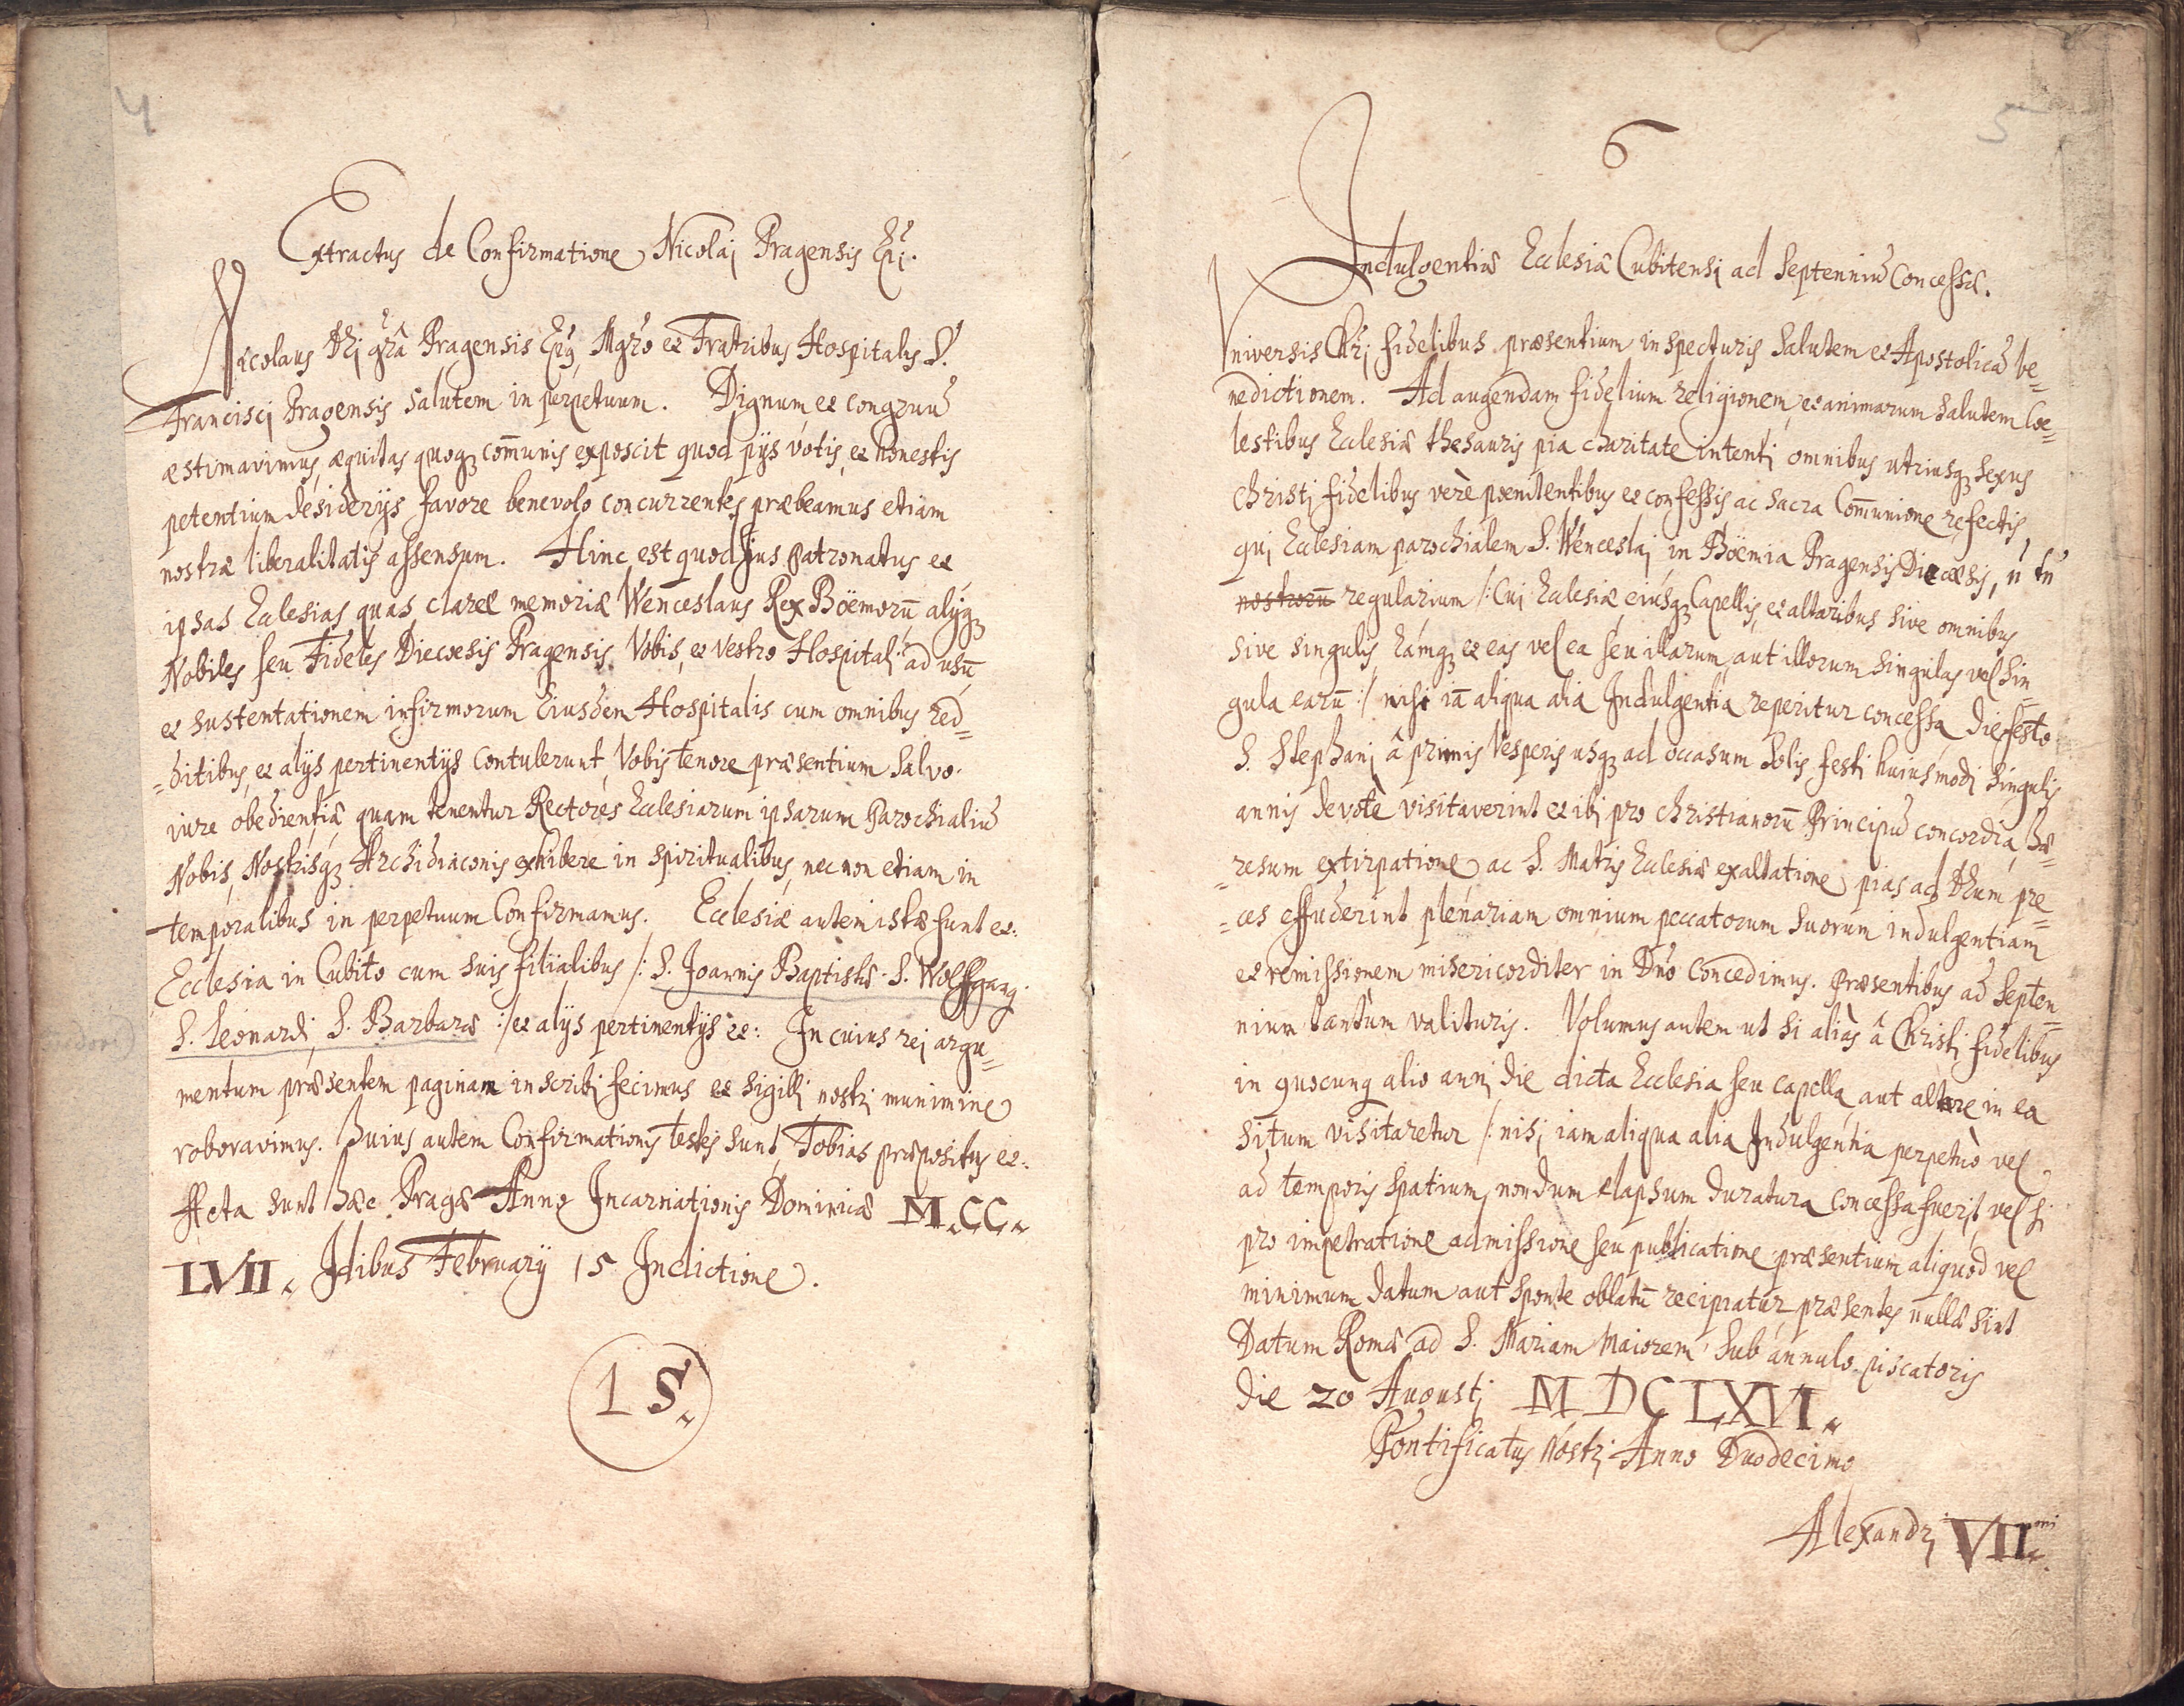 4
Extractus de Confirmatione Nicolaj Pragensis Epi.
Nicolaus Dei grã Pragensis Epus Mgro et Fratribus Hospitalis S.
Francisci Pragensis salutem in perpetuum. Dignum et congruũ
æstimavimus, æquitas quoq₃ com̄unis exposcit quod pijs votis, et honestis
petentium desiderijs favore benevolo concurrentes præbeamus etiam
nostræ liberalitatis assensum. Hinc est quod Jus patronatus et
ipsas Ecclesias quas claræ memoriæ Wenceslaus Rex Böemorũ alijq₃
Nobiles seu Fideles Diecœsis Pragensis Vobis, et vestro Hospitalj ad usũ,
et sustentationem infirmorum Eiusdem Hospitalis cum omnibus red=
=ditibus, et alijs pertinentijs contulerunt, Vobis tenore præsentium salvo
iure obedientiæ quam tenentur Rectores Ecclesiarum ipsarum Parochialiũ
Nobis, Nostrisq₃ Archidiaconis exhibere in spiritualibus, nec non etiam in
temporalibus in perpetuum Confirmamus. Ecclesiæ autem istæ sunt et:
Ecclesia in Cubito cum suis filialibus /: S. Joannis Baptistæ S. Wolffgang
S. Leonardi, S. Barbaræ :/ et alijs pertinentijs et: In cuius rej argu=
mentum præsentem paginam inscribj fecimus et sigillj nostrj munimine
roboravimus. Huius autem Confirmationis testes sunt, Tobias præpositus et:
Acta sunt hæc Pragæ Anno Incarnationis Dominicæ M.CC.
LVII. Idibus February 15 Indictione.
L S.
5
6
Indulgentiæ Ecclesiæ Cubitensi ad Septenniũ Concessæ.
Universis Chrj fidelibus præsentium inspecturis Salutem et Apostolicã be=
nedictionem. Ad augendam fidelium religionem, et animarum salutem Coe=
lestibus Ecclesiæ thesauris pia charitate intentj omnibus utriusq₃ sexus
Christj fidelibus verè pœnitentibus et confessis ac sacra Com̄unione refectis,
quj Ecclesiam parochialem S. Wenceslaj in Böemia Pragensis Diœcesis, ũ tñ
nostrorũ regularium /: Cuj Ecclesiæ eiusq₃ Capellis, et altaribus sive omnibus
sive singulis, eamq₃ et eas vel ea seu illarum, aut illorum singulas vel sin=
gula earũ :/ nisi iã aliqua alia Indulgentia reperitur concessa die festo
S. Stephanj â primis Vesperis usq₃ ad occasum Solis festi huiusmodi singulis
annis devotè visitaverint et ibj pro Christianorũ Principũ concordia, hæ=
=resum extirpatione ac S. Matris Ecclesiæ exaltatione pias ad Deum pre=
=ces effuderint plenariam omnium peccatorum suorum indulgentiam
et remissionem misericorditer in Dño Concedimus. Præsentibus ad Septen=
nium tantum valituris. Volumus autem ut si aliàs â Christj fidelibus
in quocunq alio annj die dicta Ecclesia seu capella aut altare in ea
situm visitaretur /: nisj iam aliqua alia Indulgentia perpetuò vel
ad temporis spatium, nondum elapsum duratura concessa fuerit, vel si
pro impetratione admissione seu publicatione præsentium aliquod vel
minimum datum aut sponte oblatũ recipiatur, præsentes nullæ sint
Datum Romæ ad S. Mariam Maiorem sub annulo piscatoris
die 20 Augustj M DC LXVI.
Pontificatus Nostrj Anno Duodecimo
Alexandrj VII.